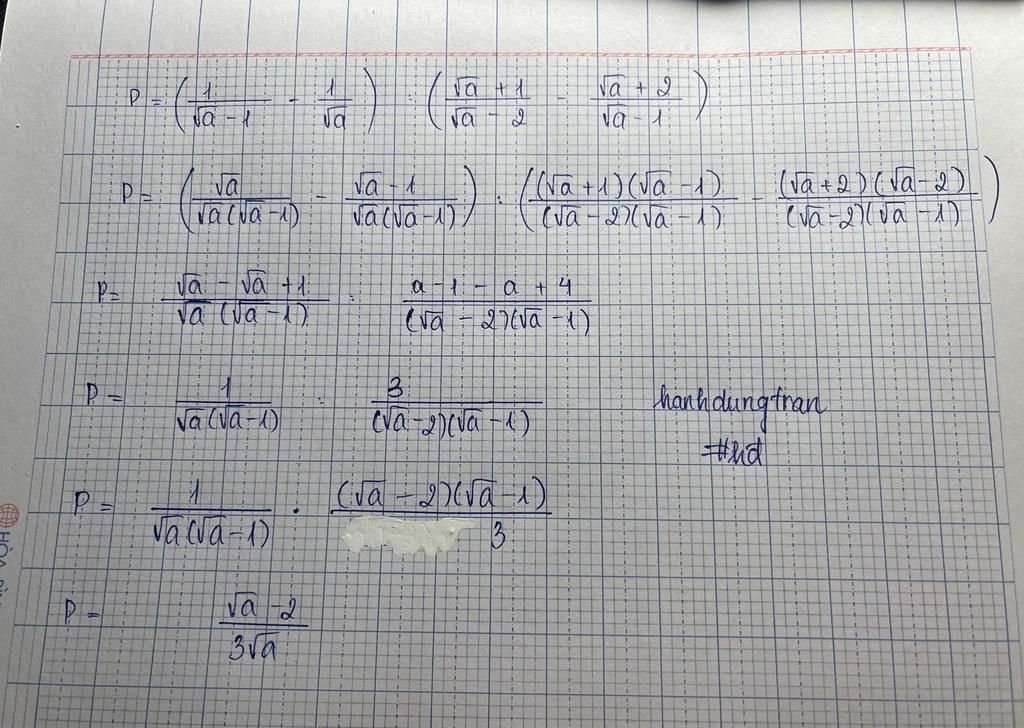 P = (1/(√a - 1) - 1/√a) : ((√a + 1)/(√a - 2) - (√a + 2)/(√a - 1))
P = (√a/(√a(√a - 1)) - (√a - 1)/(√a(√a - 1))) : (((√a + 1)(√a - 1)/((√a - 2)(√a - 1)) - (√a + 2)(√a - 2)/((√a - 2)(√a - 1)))
P = (√a - √a + 1)/(√a(√a - 1)) : (a - 1 - a + 4)/((√a - 2)(√a - 1))
P = 1/(√a(√a - 1)) : 3/((√a - 2)(√a - 1))
hanhdungtran
#hd
P = 1/(√a(√a - 1)) . (√a - 2)(√a - 1)/3
P = (√a - 2)/(3√a)